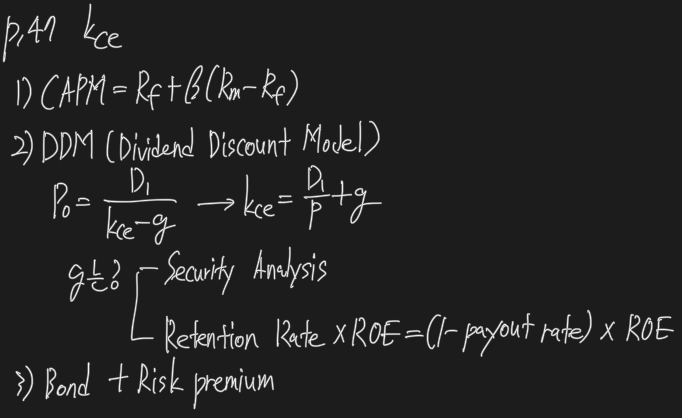 p.47 kce
1) CAPM = Rf + β(Rm - Rf)
2) DDM (Dividend Discount Model)
P₀ = D₁ / (kce - g) → kce = D₁/P + g
g는? Security Analysis
Retention Rate × ROE = (1 - payout rate) × ROE
3) Bond + Risk premium